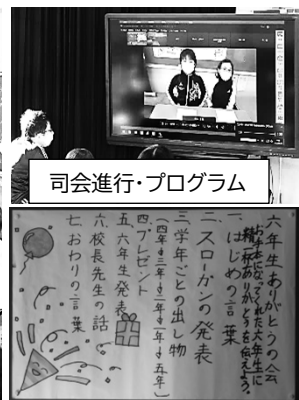 司会進行・プログラム
六年生ありがとうの会
お世話になってくれた六年生に
精一杯ありがとうを伝えよう。
一、はじめの言葉
二、スローガンの発表
三、学年ごとの出し物
(四年→三年→二年→一年→五年)
四、プレゼント
五、六年生発表
六、校長先生の話
七、おわりの言葉